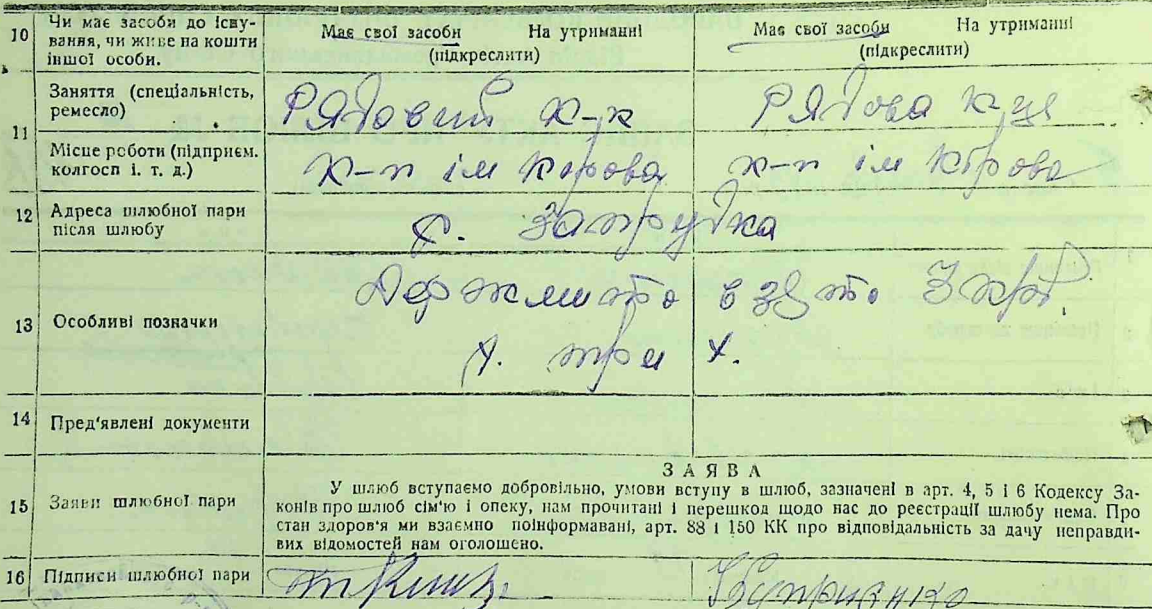 10 Чи має засоби до існу-
вання, чи живе на кошти
іншої особи.
Має свої засоби На утриманні
(підкреслити)
Має свої засоби На утриманні
(підкреслити)
11 Заняття (спеціальність,
ремесло)
Рядовий к-к
Рядова к-ця
Місце роботи (підприєм.
колгосп і. т. д.)
к-п ім Кірова
к-п ім Кірова
12 Адреса шлюбної пари
після шлюбу
с. Запрудка
13 Особливі позначки
Держмито взято 3 крб
14 Пред'явлені документи
15 Заяви шлюбної пари
ЗАЯВА
У шлюб вступаємо добровільно, умови вступу в шлюб, зазначені в арт. 4, 5 і 6 Кодексу За-
конів про шлюб сім'ю і опеку, нам прочитані і перешкод щодо нас до реєстрації шлюбу нема. Про
стан здоров'я ми взаємно поінформавані, арт. 88 і 150 КК про відповідальність за дачу неправди-
вих відомостей нам оголошено.
16 Підписи шлюбної пари